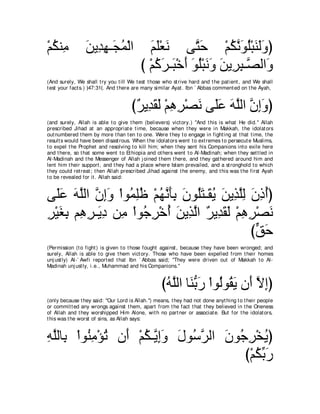 (وَلَنَبْلُوَنَّكُمْ حَتَّى نَعْلَمَ الْمُجَـهِدِينَ مِنكُمْ
وَالصَّـبِرِينَ وَنَبْلُوَ أَخْبَـرَكُمْ )
(And surely, We shall try you till We test those who strive hard and the patient, and We shall
test your facts.) (47:31). And there are many similar Ayat. Ibn `Abbas commented on the Ayah,
(وَإِنَّ اللَّهَ عَلَى نَصْرِهِمْ لَقَدِيرٌ)
(and surely, Allah is able to give them (believers) victory.) "And this is what He did." Allah
prescribed Jihad at an appropriate time, because when they were in Makkah, the idolators
outnumbered them by more than ten to one. Were they to engage in fighting at that time, the
results would have been disastrous. When the idolators went to extremes to persecute Muslims,
to expel the Prophet and resolving to kill him; when they sent his Companions into exile here
and there, so that some went to Ethiopia and others went to Al-Madinah; when they settled in
Al-Madinah and the Messenger of Allah joined them there, and they gathered around him and
lent him their support, and they had a place where Islam prevailed, and a stronghold to which
they could retreat; then Allah prescribed Jihad against the enemy, and this was the first Ayah
to be revealed for it. Allah said:
(أُذِنَ لِلَّذِينَ يُقَـتَلُونَ بِأَنَّهُمْ ظُلِمُواْ وَإِنَّ اللَّهَ عَلَى
نَصْرِهِمْ لَقَدِيرٌ الَّذِينَ أُخْرِجُواْ مِن دِيَـرِهِم بِغَيْرِ
حَقٍّ)
(Permission (to fight) is given to those fought against, because they have been wronged; and
surely, Allah is able to give them victory. Those who have been expelled from their homes
unjustly) Al-`Awfi reported that Ibn `Abbas said; "They were driven out of Makkah to Al-
Madinah unjustly, i.e., Muhammad and his Companions."
(إِلاَّ أَن يَقُولُواْ رَبُّنَا اللَّهُ)
(only because they said: "Our Lord is Allah.") means, they had not done anything to their people
or committed any wrongs against them, apart from the fact that they believed in the Oneness
of Allah and they worshipped Him Alone, with no partner or associate. But for the idolators,
this was the worst of sins, as Allah says:
(يُخْرِجُونَ الرَّسُولَ وَإِيَّـكُمْ أَن تُؤْمِنُواْ بِاللَّهِ
رَبِّكُمْ)